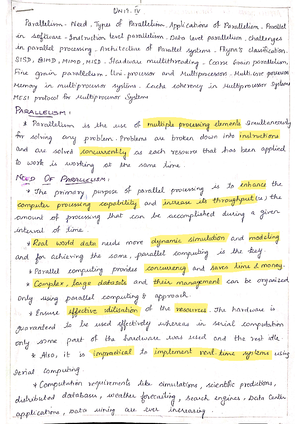 UNIT-IV
Parallelism - Need - Types of Parallelism, Applications of Parallelism - Parallel
in Software - Instruction level parallelism - Data level parallelism - Challenges
in parallel processing - Architecture of Parallel systems - Flynn's classification
SISD, SIMD, MIMD, MISD - Hardware multithreading - Coarse Grain parallelism,
Fine grain parallelism - Uni-processor and Multiprocessors - Multi core processor
Memory in multiprocessor systems - Cache coherency in Multiprocessor Systems
MESI protocol for Multiprocessor Systems
PARALLELISM:
* Parallelism is the use of multiple processing elements simultaneously
for solving any problem. Problems are broken down into instructions
and are solved concurrently as each resource that has been applied
to work is working at the same time.
NEED OF PARALLELISM:
* The primary purpose of parallel processing is to enhance the
computer processing capability and increase its throughput (ie) the
amount of processing that can be accomplished during a given
interval of time.
* Real world data needs more dynamic simulation and modeling
and for achieving the same, parallel computing is the key
* Parallel computing provides concurrency and save time & money.
* Complex, large datasets and their management can be organized
only using parallel computing's approach.
* Ensure effective utilisation of the resources. The hardware is
guaranteed to be used effectively whereas in serial computation
only some part of the hardware was used and the rest idle.
* Also, it is impractical to implement real time systems using
serial computing.
* Computation requirements like simulations, scientific predictions,
distributed databases, weather forecasting, search engines, Data Center
applications, Data mining are ever increasing.